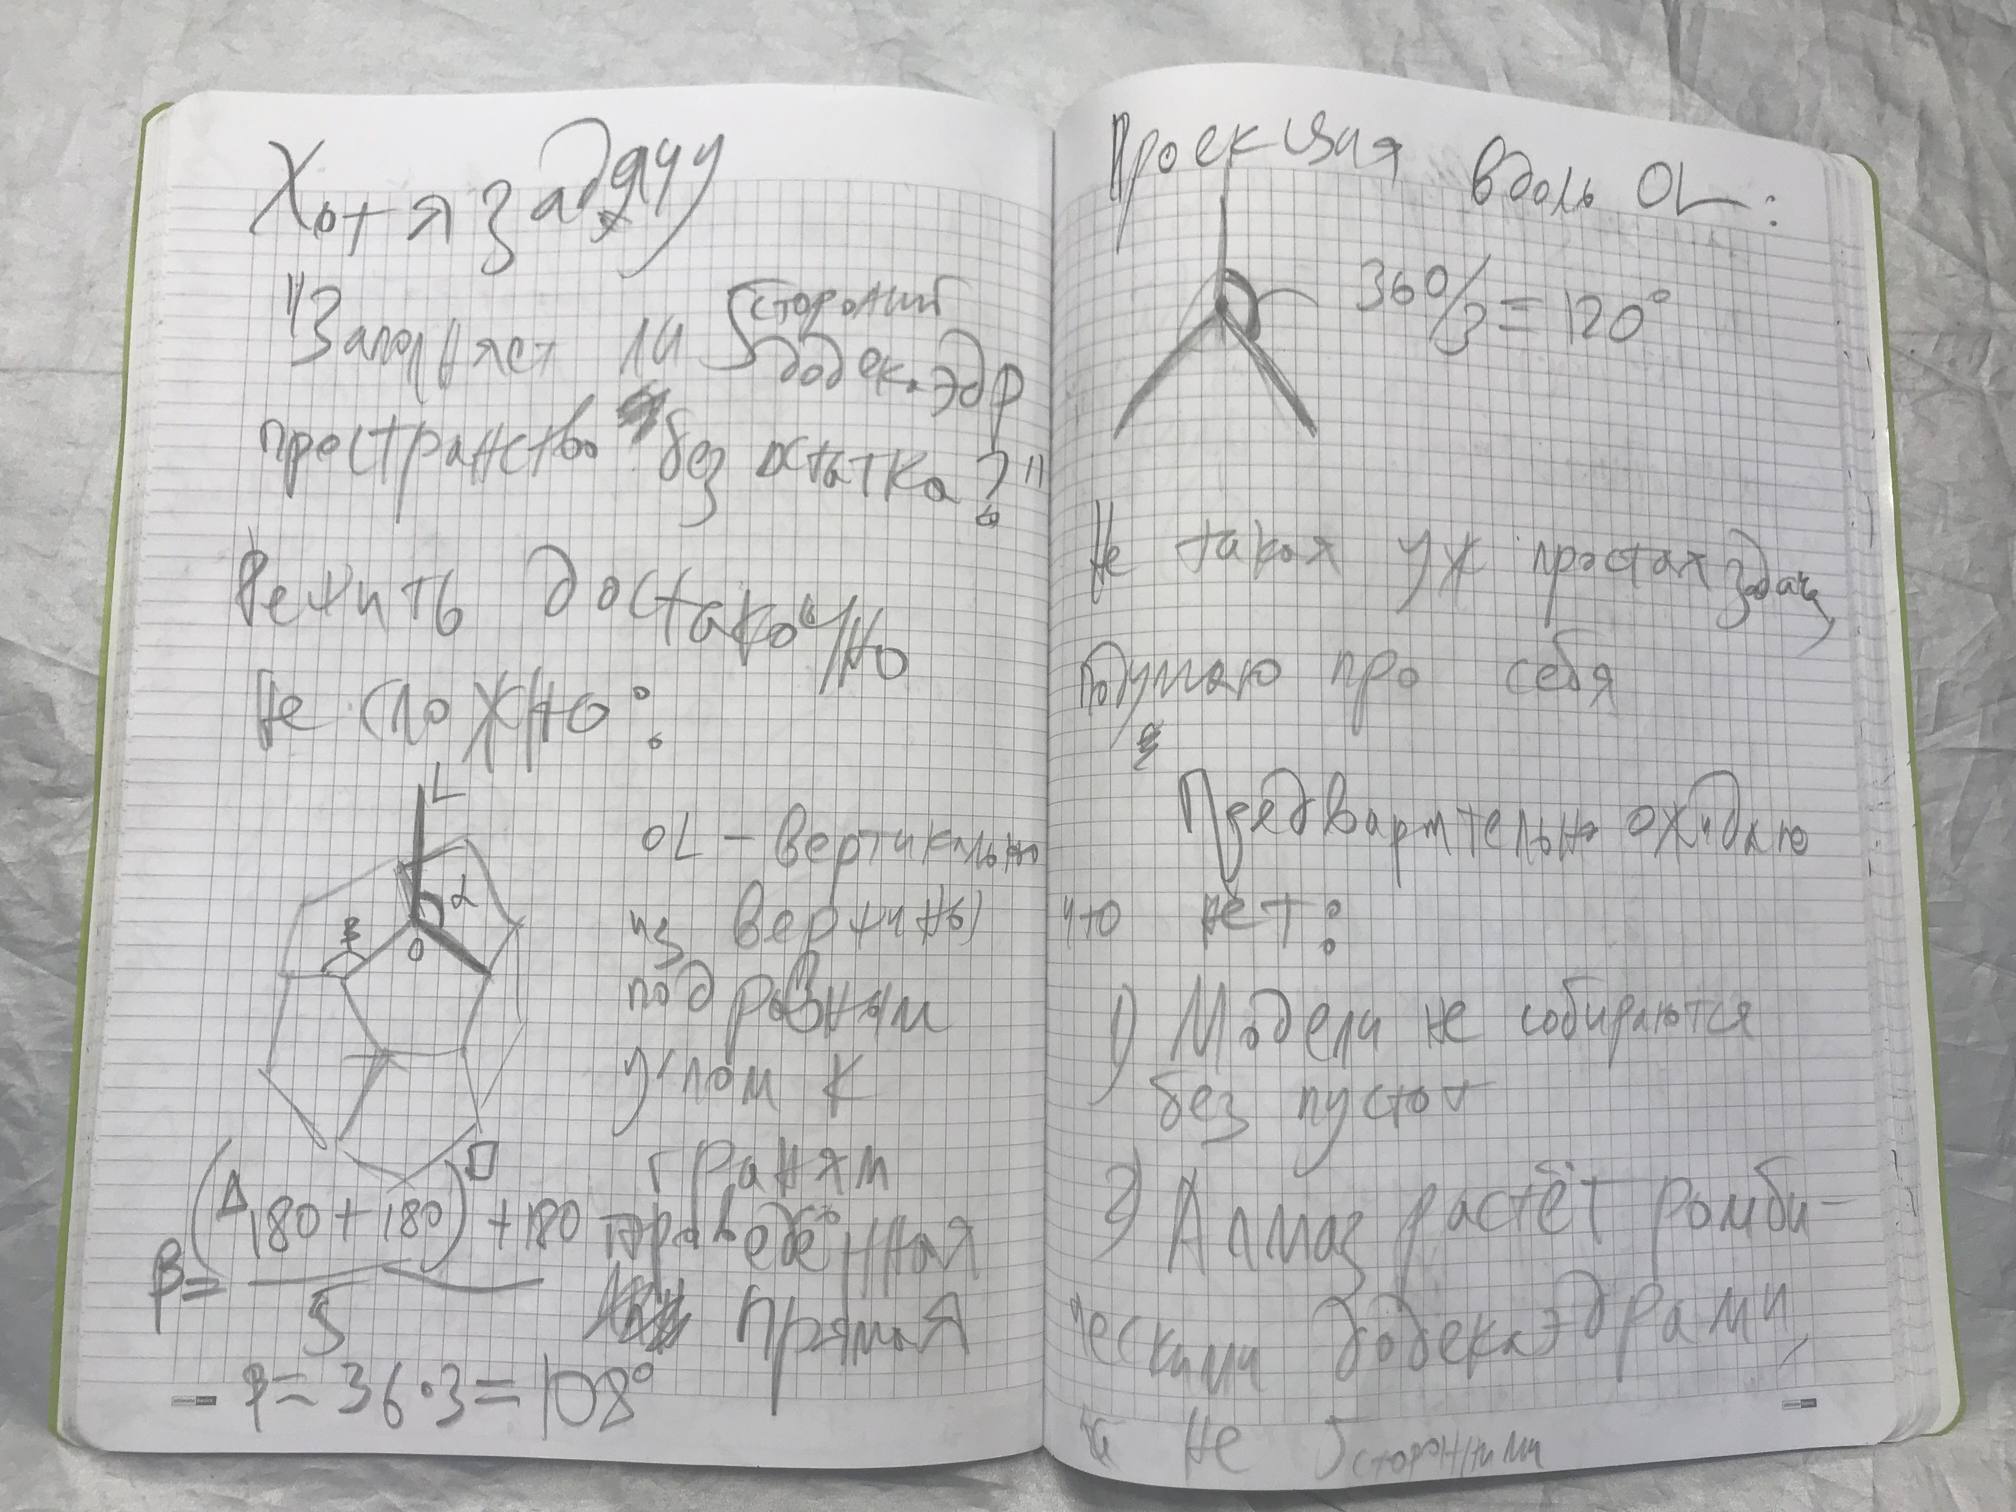 Хотя задачу
"Заполняет ли 5сторонний
додекаэдр
пространство без остатка?"
Решить достаточно
не сложно:
L
α
O
OL - вертикально
из вершины
под равным
углом к
граням
проведённая
прямая
β = (180 + 180) + 180
5
β = 36·3 = 108°
Проекция вдоль OL:
360/3 = 120°
Не такая уж простая задача,
подумаю про себя
Предварительно ожидаю
что нет:
1) Модели не собираются
без пустот
2) Алмаз растёт ромби-
ческими додекаэдрами,
не 5сторонними